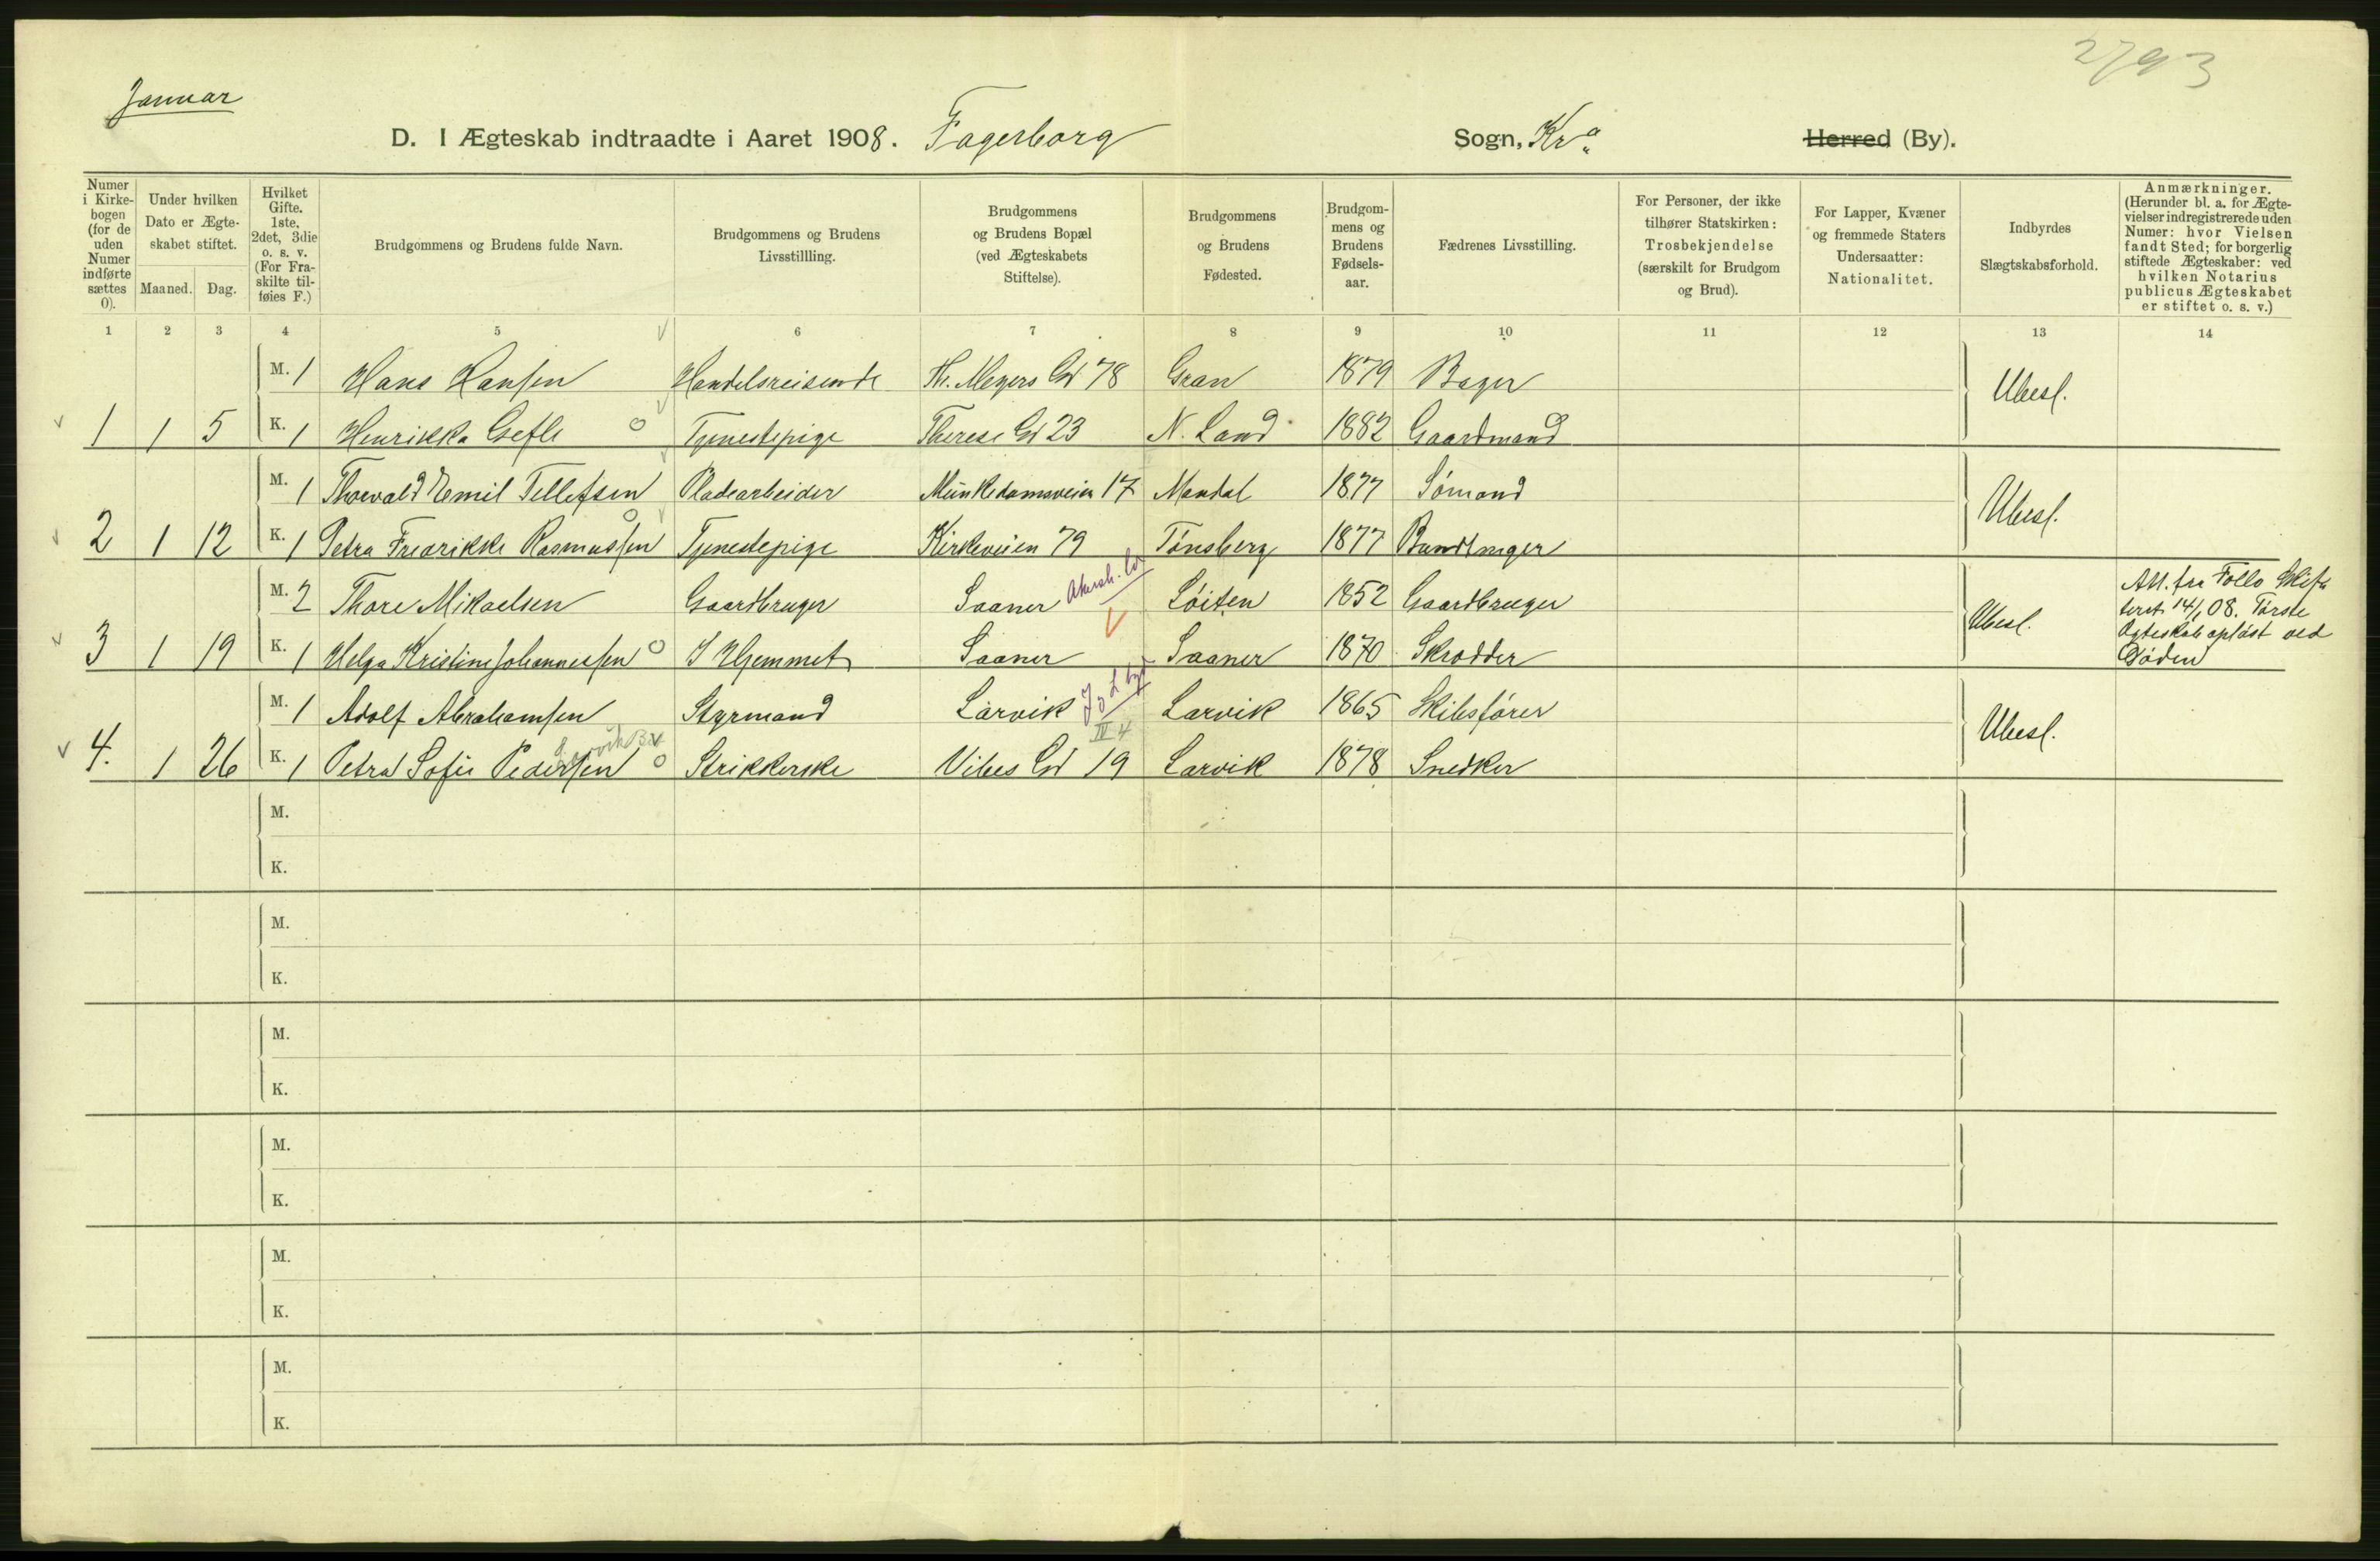 2793
Januar
D. I Ægteskab indtraadte i Aaret 1908. Fagerborg Sogn, Kra Herred (By).
Numer i Kirke-bogen (for de uden Numer indførte sættes 0).
Under hvilken Dato er Ægte-skabet stiftet.
Maaned. Dag.
Hvilket Gifte. 1ste, 2det, 3die o. s. v. (For Fra-skilte til-føies F.)
Brudgommens og Brudens fulde Navn.
Brudgommens og Brudens Livsstillling.
Brudgommens og Brudens Bopæl (ved Ægteskabets Stiftelse).
Brudgommens og Brudens Fødested.
Brudgom-mens og Brudens Fødsels-aar.
Fædrenes Livsstilling.
For Personer, der ikke tilhører Statskirken: Trosbekjendelse (særskilt for Brudgom og Brud).
For Lapper, Kvæner og fremmede Staters Undersaatter: Nationalitet.
Indbyrdes Slægtskabsforhold.
Anmærkninger. (Herunder bl. a. for Ægte-vielser indregistrerede uden Numer: hvor Vielsen fandt Sted; for borgerlig stiftede Ægteskaber: ved hvilken Notarius publicus Ægteskabet er stiftet o. s. v.)
1 2 3 4 5 6 7 8 9 10 11 12 13 14
M. 1 Hans Hansen Handelsreisende Th. Meyers Gd 78 Gran 1879 Bager Ubesl.
1 1 5 K. 1 Henrikka Gefle Tjenestepige Therese Gd 23 N. Land 1882 Gaardmand
M. 1 Thorvald Emil Tellefsen Pladearbeider Munkedamsveien 17 Mandal 1877 Sømand Ubesl.
2 1 12 K. 1 Petra Fredrikke Rasmussen Tjenestepige Kirkeveien 79 Tønsberg 1877
M. 2 Thore Mikaelsen Gaardbruger Saaner Akersh. Løiten 1852 Gaardbruger Ubesl. Att. fra Follo Skifteret 14/1 08. Første Ægteskab opløst ved Døden
3 1 19 K. 1 Helga Kristine Johannessen I Hjemmet Saaner Saaner 1870 Skrædder
M. 1 Adolf Abrahamsen Styrmand Larvik Larvik 1865 Skibsfører Ubesl.
IV 4
4. 1 26 K. 1 Petra Sofie Pedersen Strikkerske Vibes Gd 19 Larvik 1878 Snedker
M.
K.
M.
K.
M.
K.
M.
K.
M.
K.
M.
K.